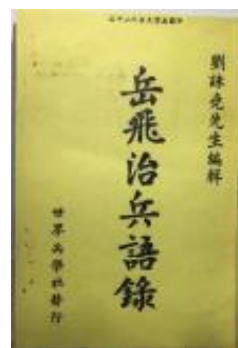 劉詠堯先生編輯
岳飛治兵語錄
世界兵學社發行